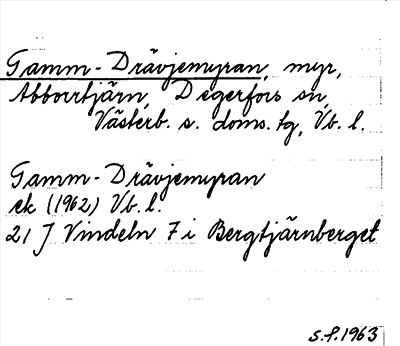 Gamm-Drävjemyran, myr,
Abborrtjärn, Degerfors sn,
Västerb. s. doms. tg, Vb. l.
Gamm-Drävjemyran
ek (1962) Vb. l.
21 J Vindeln 7 i Bergtjärnberget
S.f. 1963